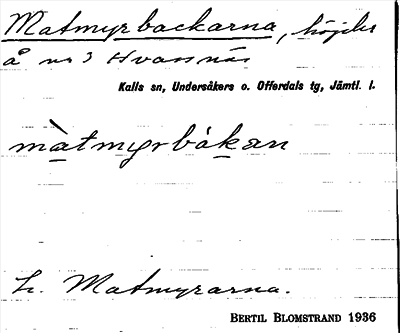 Matmyrbackarna, höjder
å nr 3 Hvassnäs
Kalls sn, Undersåkers o. Offerdals tg, Jämtl. l.
màtmyrbákan
L. Matmyrarna.
BERTIL BLOMSTRAND 1936